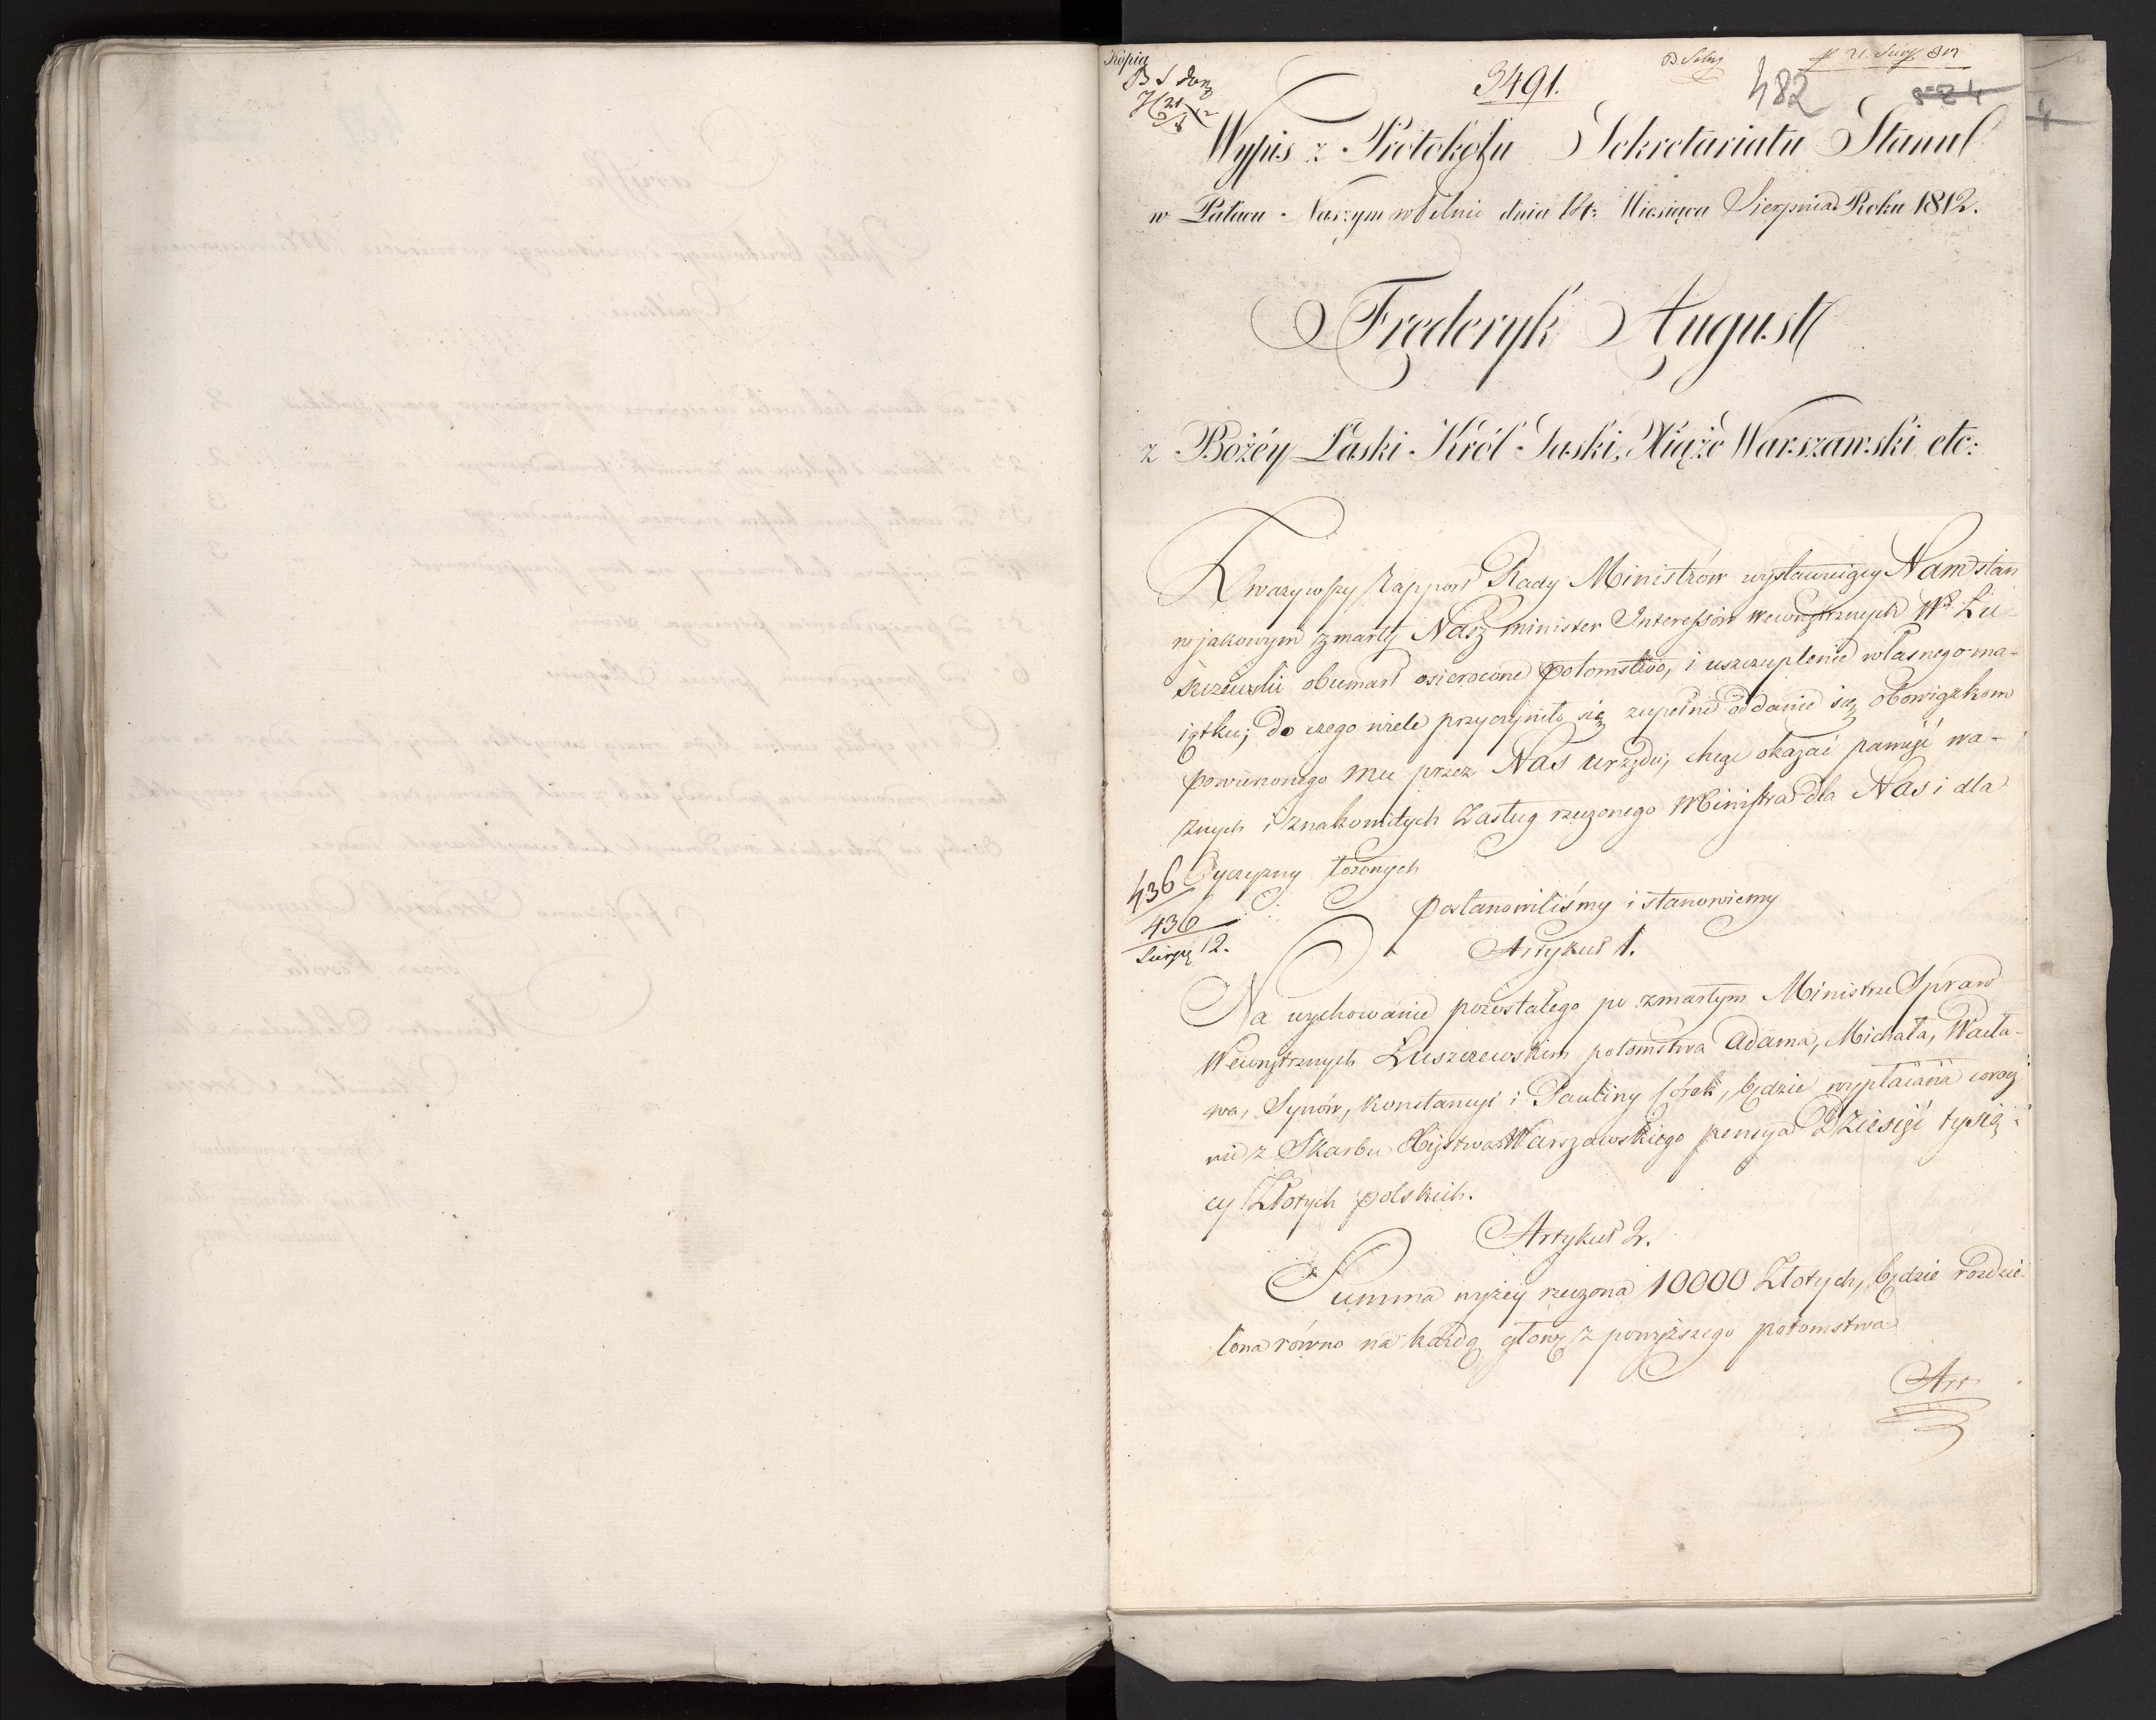 Kopia
3491.
482
524
4
Wypis z Protokołu Sekretariatu Stanu
w Pałacu Naszym w Pilnic dnia 14: Miesiąca Sierpnia Roku 1812.
Frederyk August
z Bożéy Łaski Król Saski, Xiąże Warszawski etc:
Zwazywszy Rapport Rady Ministrów wystawuiący Nam stan
w jakowym zmarły Nasz Minister Interessów Wewnętrznych Wy Łu-
szczewski obumarł osierocone potomstwo, i uszczuplenie własnego ma-
iątku; do czego wiele przyczyniło się zupełne oddanie się obowiązkom
powierzonego mu przez Nas urzędu, chcąc okazać pamięć wa-
żnych i znakomitych Zasług rzeczonego Ministra dla Nas i dla
Oyczyzny łożonych
436
436
Sierpń 12.
postanowiliśmy i stanowiemy
Artykuł 1.
Na wychowanie pozostałego po zmarłym Ministrze Spraw
Wewnętrznych Łuszczewskim potomstwa Adama, Michała, Wacła-
wa, Synów, Konstancyi i Pauliny Córek, będzie wypłacana coroc
nie z Skarbu Xięstwa Warszawskiego pensya Dziesięć tysię-
cy Złotych polskich.
Artykuł 2.
Summa wyżey rzeczona 10000 Złotych, będzie rozdzie-
lona równo na każdą głowę z powyższego potomstwa
Art